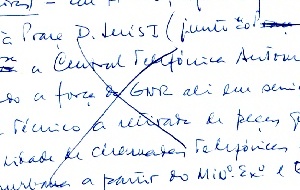 à Praça D. Luís I (junto
a Central Telefónica Autom
do a força da GNR ali em servi
Técnico a retirada de peças
lidade de chamadas Telefónicas
urbana a partir do Minº. Exº. e